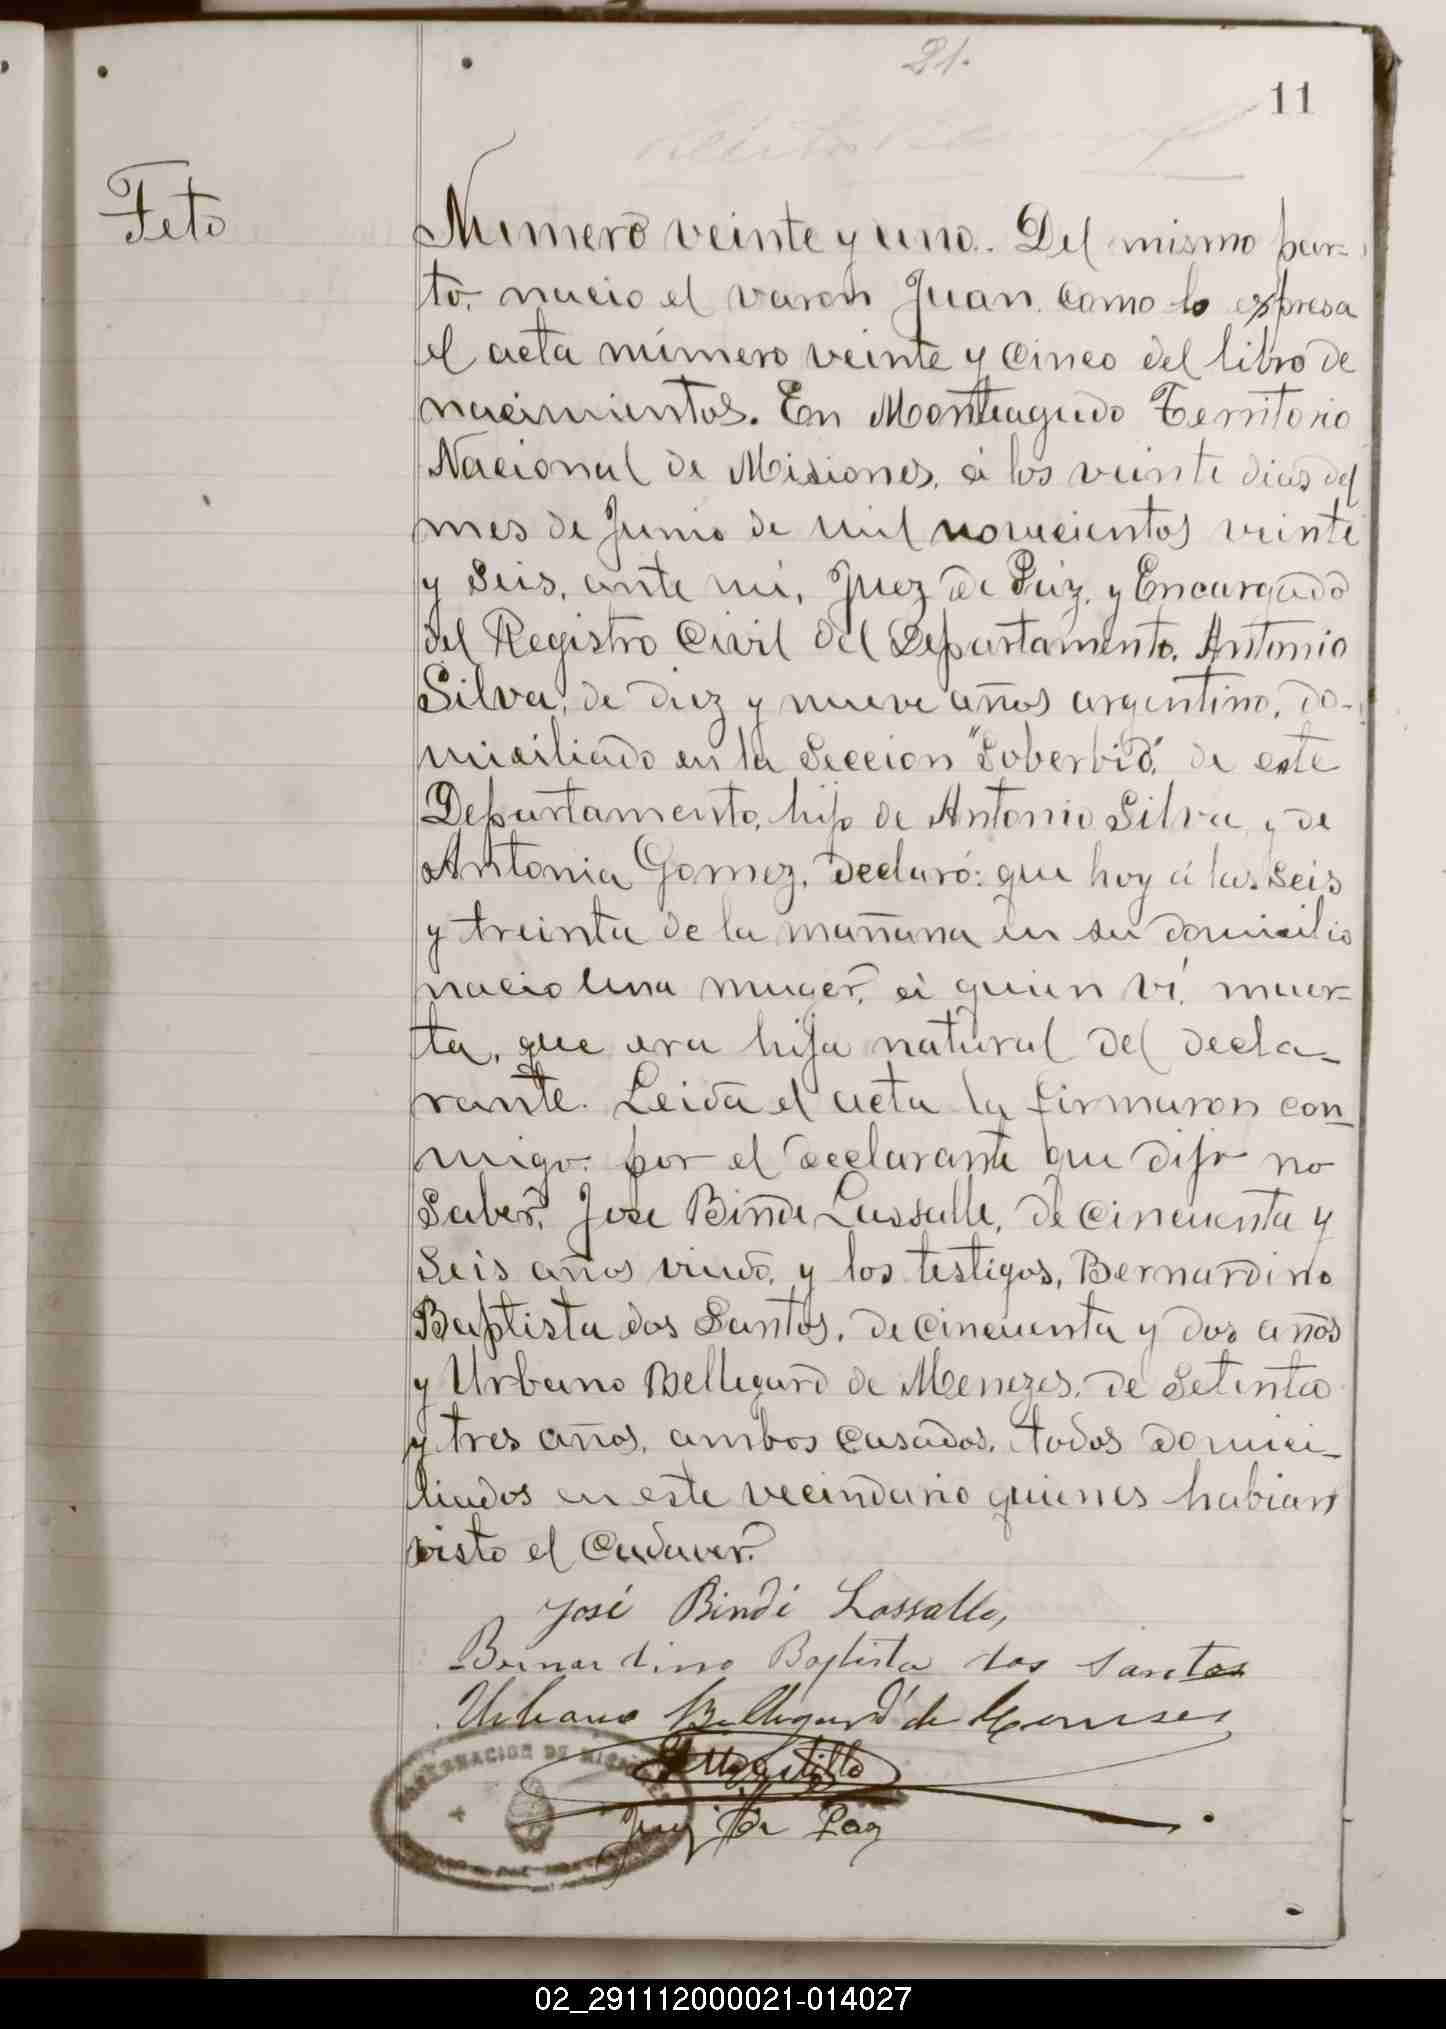 21.
11
Feto
Numero veinte y uno. Del mismo par-
to. nacio el varon Juan. como lo expresa
el acta número veinte y cinco del libro de
nacimientos. En Monteagudo Territorio
Nacional de Misiones, á los veinte dias del
mes de Junio de mil novecientos veinte
y seis, ante mi, Juez de Paz, y Encargado
del Registro Civil del Departamento, Antonio
Silva, de diez y nueve años argentino, do-
miciliado en la Seccion "Soberbio", de este
Departamento, hijo de Antonio Silva y de
Antonia Gomez, declaró: que hoy á las seis
y treinta de la mañana en su domicilio
nacio una muger, á quien ví muer-
ta, que era hija natural del decla-
rante. Leida el acta la firmaron con
migo. por el declarante que dijo no
saber, Jose Binde Lassalle, de cincuenta y
seis años viudo, y los testigos, Bernardino
Baptista dos Santos, de cincuenta y dos años
y Urbano Bellegard de Menezes, de setenta
y tres años, ambos casados, todos domici-
liados en este vecindario quienes habian
visto el cadaver.
José Bindé Lassalle,
Bernardino Baptista dos Santos
Urbano Bellegard de Menezes
Juez de Paz
GOBERNACION DE MISIONES
02_291112000021-014027